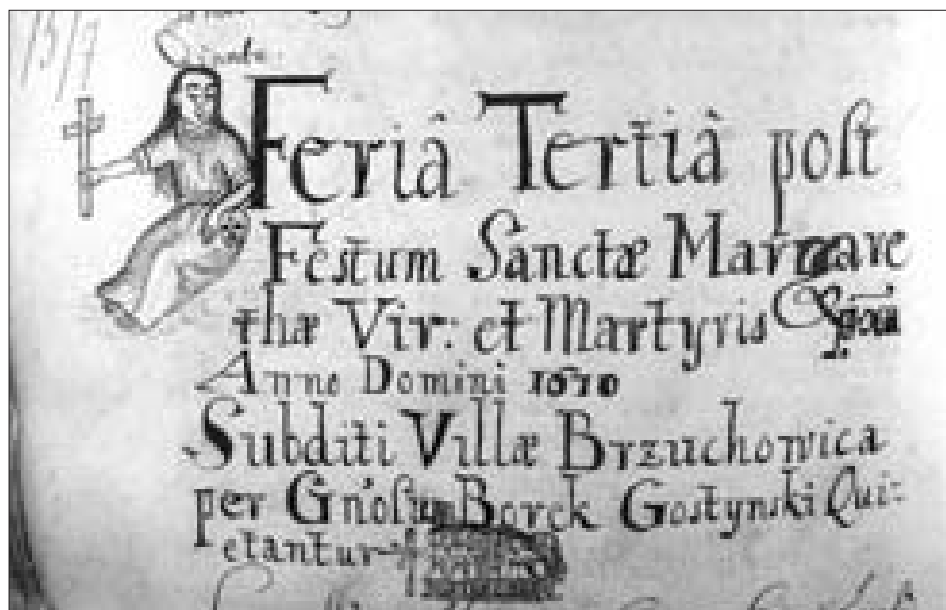 Feriâ Tertiâ post
Festum Sanctæ Margare
thæ Vir: et Martyris
Anno Domini 1670
Subditi Villæ Brzuchowica
per Gnosum Borck Gostynski Qui:
etantur